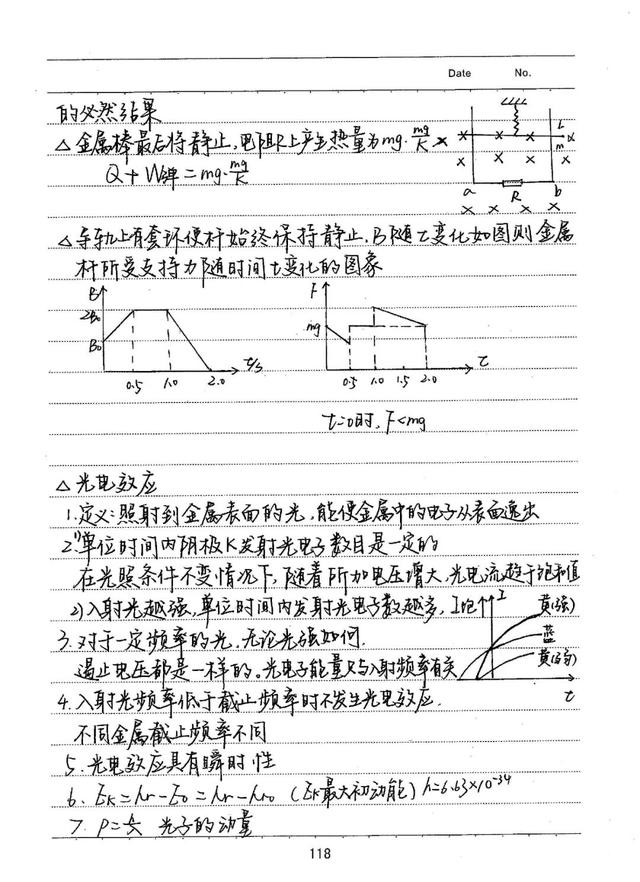 Date No.
的必然结果
△金属棒最后将静止,电阻R上产生热量为mg·mg/K
Q+W弹=mg·mg/K
L
m
a
R
b
△导轨上有套环使杆始终保持静止,B随t变化如图则金属
杆所受支持力随时间t变化的图象
B
2B₀
B₀
0.5 1.0 2.0 t/s
F
mg
0.5 1.0 1.5 2.0 t
t=0时,F<mg
△光电效应
1.定义:照射到金属表面的光,能使金属中的电子从表面逸出
2.1)单位时间内阴极K发射光电子数目是一定的
在光照条件不变情况下,随着所加电压增大,光电流趋于饱和值
2)入射光越强,单位时间内发射光电子数越多,I饱↑
3.对于一定频率的光,无论光强如何,
遏止电压都是一样的。光电子能量只与入射频率有关
I
黄(强)
蓝
黄(弱)
t
4.入射光频率低于截止频率时不发生光电效应.
不同金属截止频率不同
5.光电效应具有瞬时性
6.Ek=hν-E₀=hν-hν₀ (Ek最大初动能) h=6.63×10⁻³⁴
7.P=h/λ 光子的动量
118